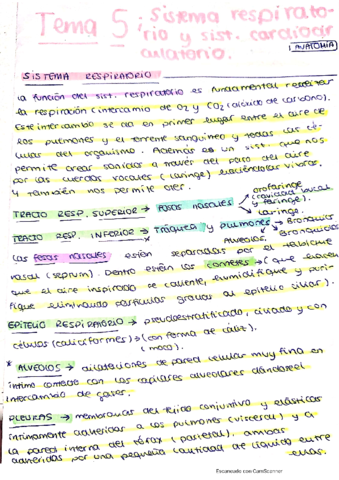 Tema 5: Sistema respirato-
rio y sist. cardiocir
culatorio.
ANATOMIA
SISTEMA RESPIRATORIO
La función del sist. respiratorio es fundamental realizar
la respiración (intercambio de O2 y CO2 (dióxido de carbono).
Este intercambio se da en primer lugar entre el aire de
los pulmones y el torrente sanguíneo y todas las cé-
lulas del organismo. Además es un sist. que nos
permite crear sonidos a través del paso del aire
por las cuerdas vocales (laringe) haciéndolas vibrar,
y también nos permite oler.
TRACTO RESP. SUPERIOR → FOSAS NASALES
orofaringe
(cavidad bucal
y faringe).
laringe.
TRACTO RESP. INFERIOR → TRÁQUEA y PULMONES → Bronquios
ALVEOLOS, Bronquiolos
Las fosas nasales están separadas por el tabique
nasal (septum). Dentro están los cornetes → (que hacen
que el aire inspirado se caliente, humidifique y puri-
fique eliminando partículas gracias al epitelio ciliar).
EPITELIO RESPIRATORIO → pseudoestratificado, ciliado y con
células (caliciformes) → (con forma de cáliz).
(moco).
* ALVEOLOS → dilataciones de pared celular muy fina en
íntimo contacto con los capilares alveolares dándose el
intercambio de gases.
PLEURAS → membranas del tejido conjuntivo y elásticas
íntimamente adheridas a los pulmones (visceral) y a
la pared interna del tórax (parietal). ambas
adheridas por una pequeña cantidad de líquido entre
ellas.
Escaneado con CamScanner